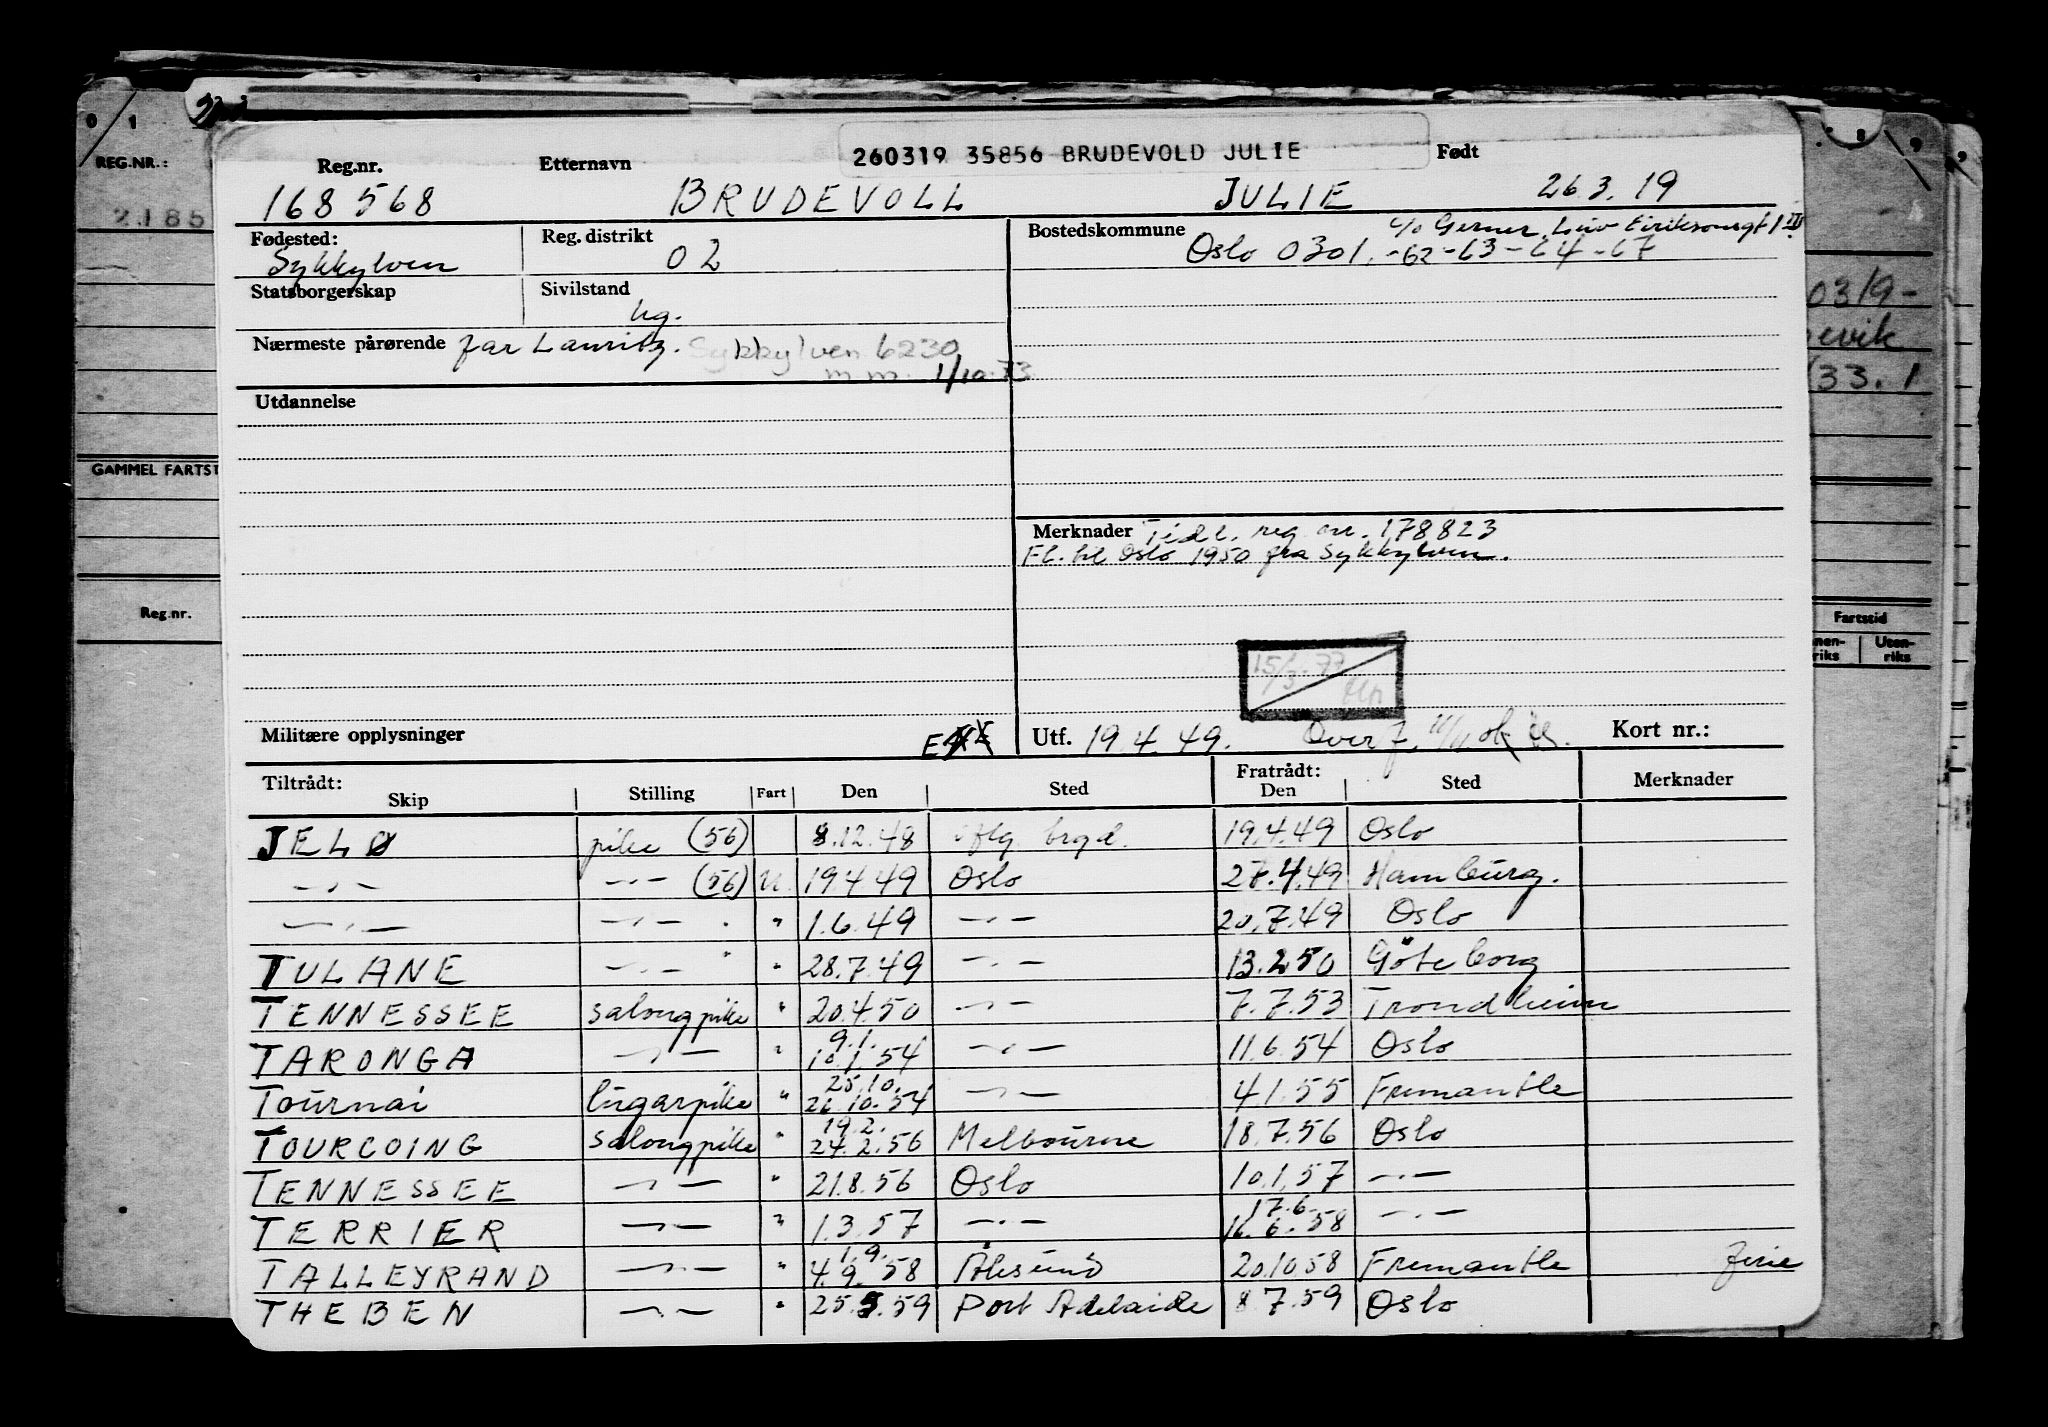 260319 35856 BRUDEVOLD JULIE
Reg.nr. Etternavn Født
168568 BRUDEVOLL JULIE 26.3.19
Fødested: Sykkylven
Reg. distrikt 02
Bostedskommune c/o Gerner,
Oslo 0301. -62-63-64-67
Statsborgerskap
Sivilstand ug.
Nærmeste pårørende far Lauritz. Sykkylven 6230
m.m. 1/10-73
Utdannelse
Merknader Tidl. reg. nr. 178823
Fl. til Oslo 1950 fra Sykkylven.
15/3-77
Militære opplysninger
Utf. 19.4.49. Overf. 11/11 ok
Kort nr.:
Tiltrådt: Fratrådt:
Skip Stilling Fart Den Sted Den Sted Merknader
JELØ pike (56) 8.12.48 19.4.49 Oslo
—„— —„— (56) U. 19.4.49 Oslo 27.4.49 Hamburg.
—„— —„— " 1.6.49 —„— 20.7.49 Oslo
TULANE —„— " " 28.7.49 —„— 13.2.50 Göteborg
TENNESSEE salongpike " 20.4.50 —„— 7.7.53 Trondheim
9.1.
TARONGA —„— " 10.1.54 —„— 11.6.54 Oslo
25.10.
Tournai lugarpike " 26.10.54 —„— 4.1.55 Fremantle
19.2.
TOURCOING salongpike " 24.2.56 Melbourne 18.7.56 Oslo
TENNESSEE —„— " 21.8.56 Oslo 10.1.57 —„—
17.6.
TERRIER —„— " 1.3.57 —„— 16.6.58 —„—
1.9.
TALLEYRAND —„— " 4.9.58 Ålesund 20.10.58 Fremantle ferie
THEBEN —„— " 25.5.59 Port Adelaide 8.7.59 Oslo
REG.NR.:
2185
GAMMEL FARTST
Reg.nr.
0319-
evik
33.1
Fartstid
nen-
riks
Uten-
riks